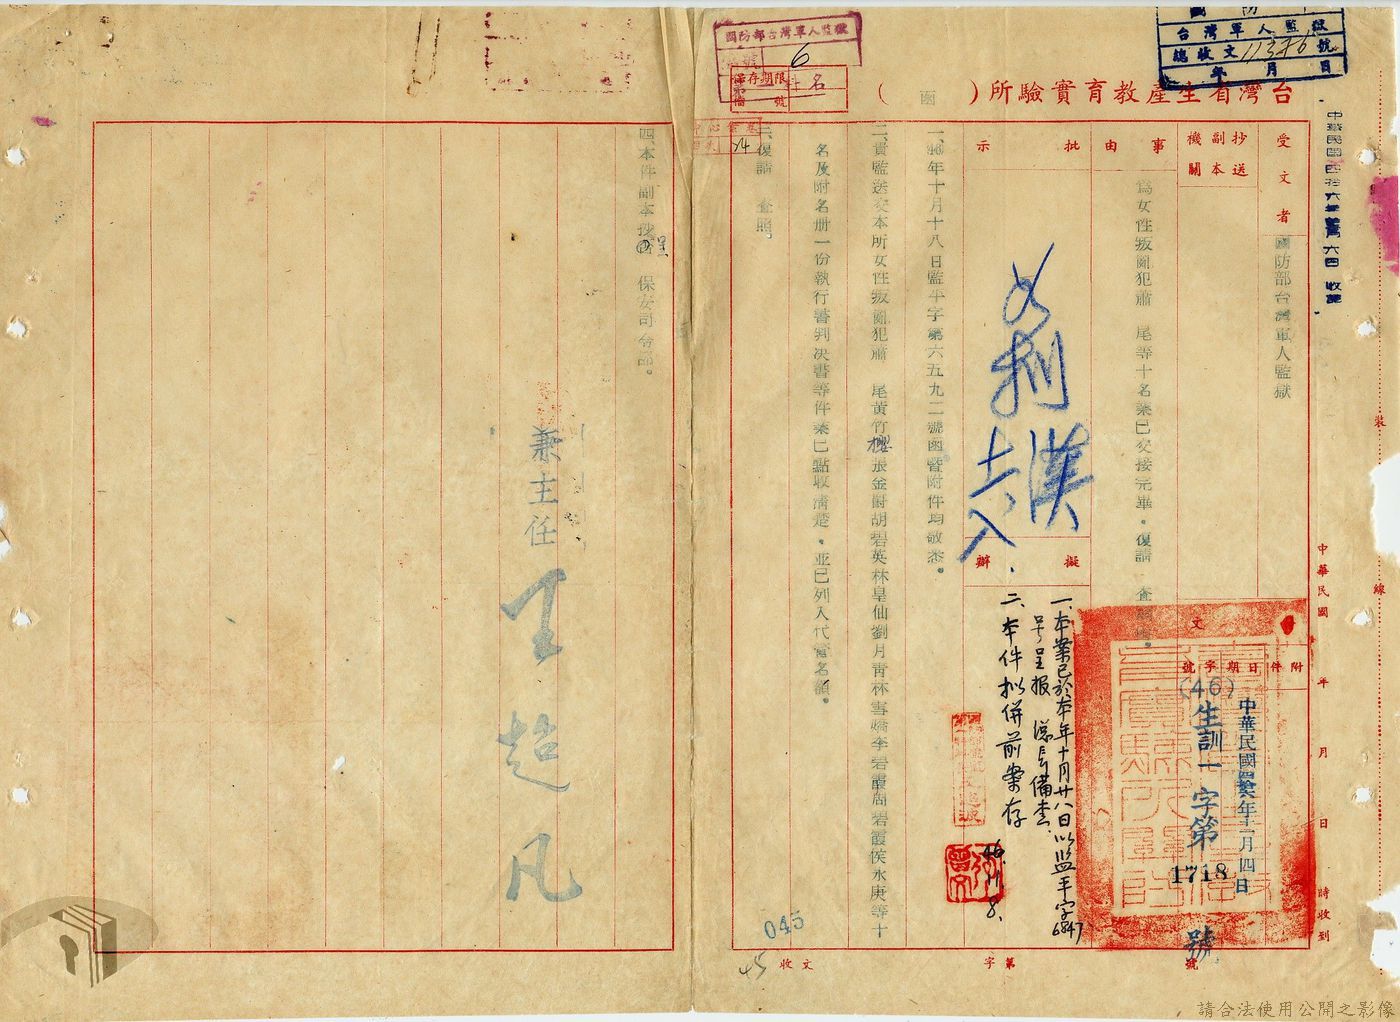 台灣省生產教育實驗所（函）
國防部
台灣軍人監獄
總收文11376號
年月日
國防部台灣軍人監獄
6
保存期限
檔號
中華民國四拾六年 六日 收
裝
線
受文者
國防部台灣軍人監獄
抄送
副本
機關
事由
為女性叛亂犯蕭　尾等十名業已交接完畢。復請　查照
批示
如擬
漢
十一、八
擬辦
一、本案已於本年十月廿八日以監平字6847
號呈报　　備查.
二、本件拟併前案存
46.11.8.
文
附件
日期
字號
中華民國肆拾陸年十一月四日
(46)生訓一字第1718號
一、46年十月十八日監平字第六五九二號函暨附件均敬悉。
二、貴監送交本所女性叛亂犯蕭　尾黃竹櫻張金爵胡碧英林皇仙劉月青林雪嬌李碧霞周碧霞侯永庚等十
名及附名册一份執行書判決書等件業已點收清楚，並已列入代管名額。
三、復請　查照。
四、本件副本抄呈　保安司令部。
兼主任
王超凡
中華民國　年　月　日　時收到
收文　字第　號
045
45
請合法使用公開之影像